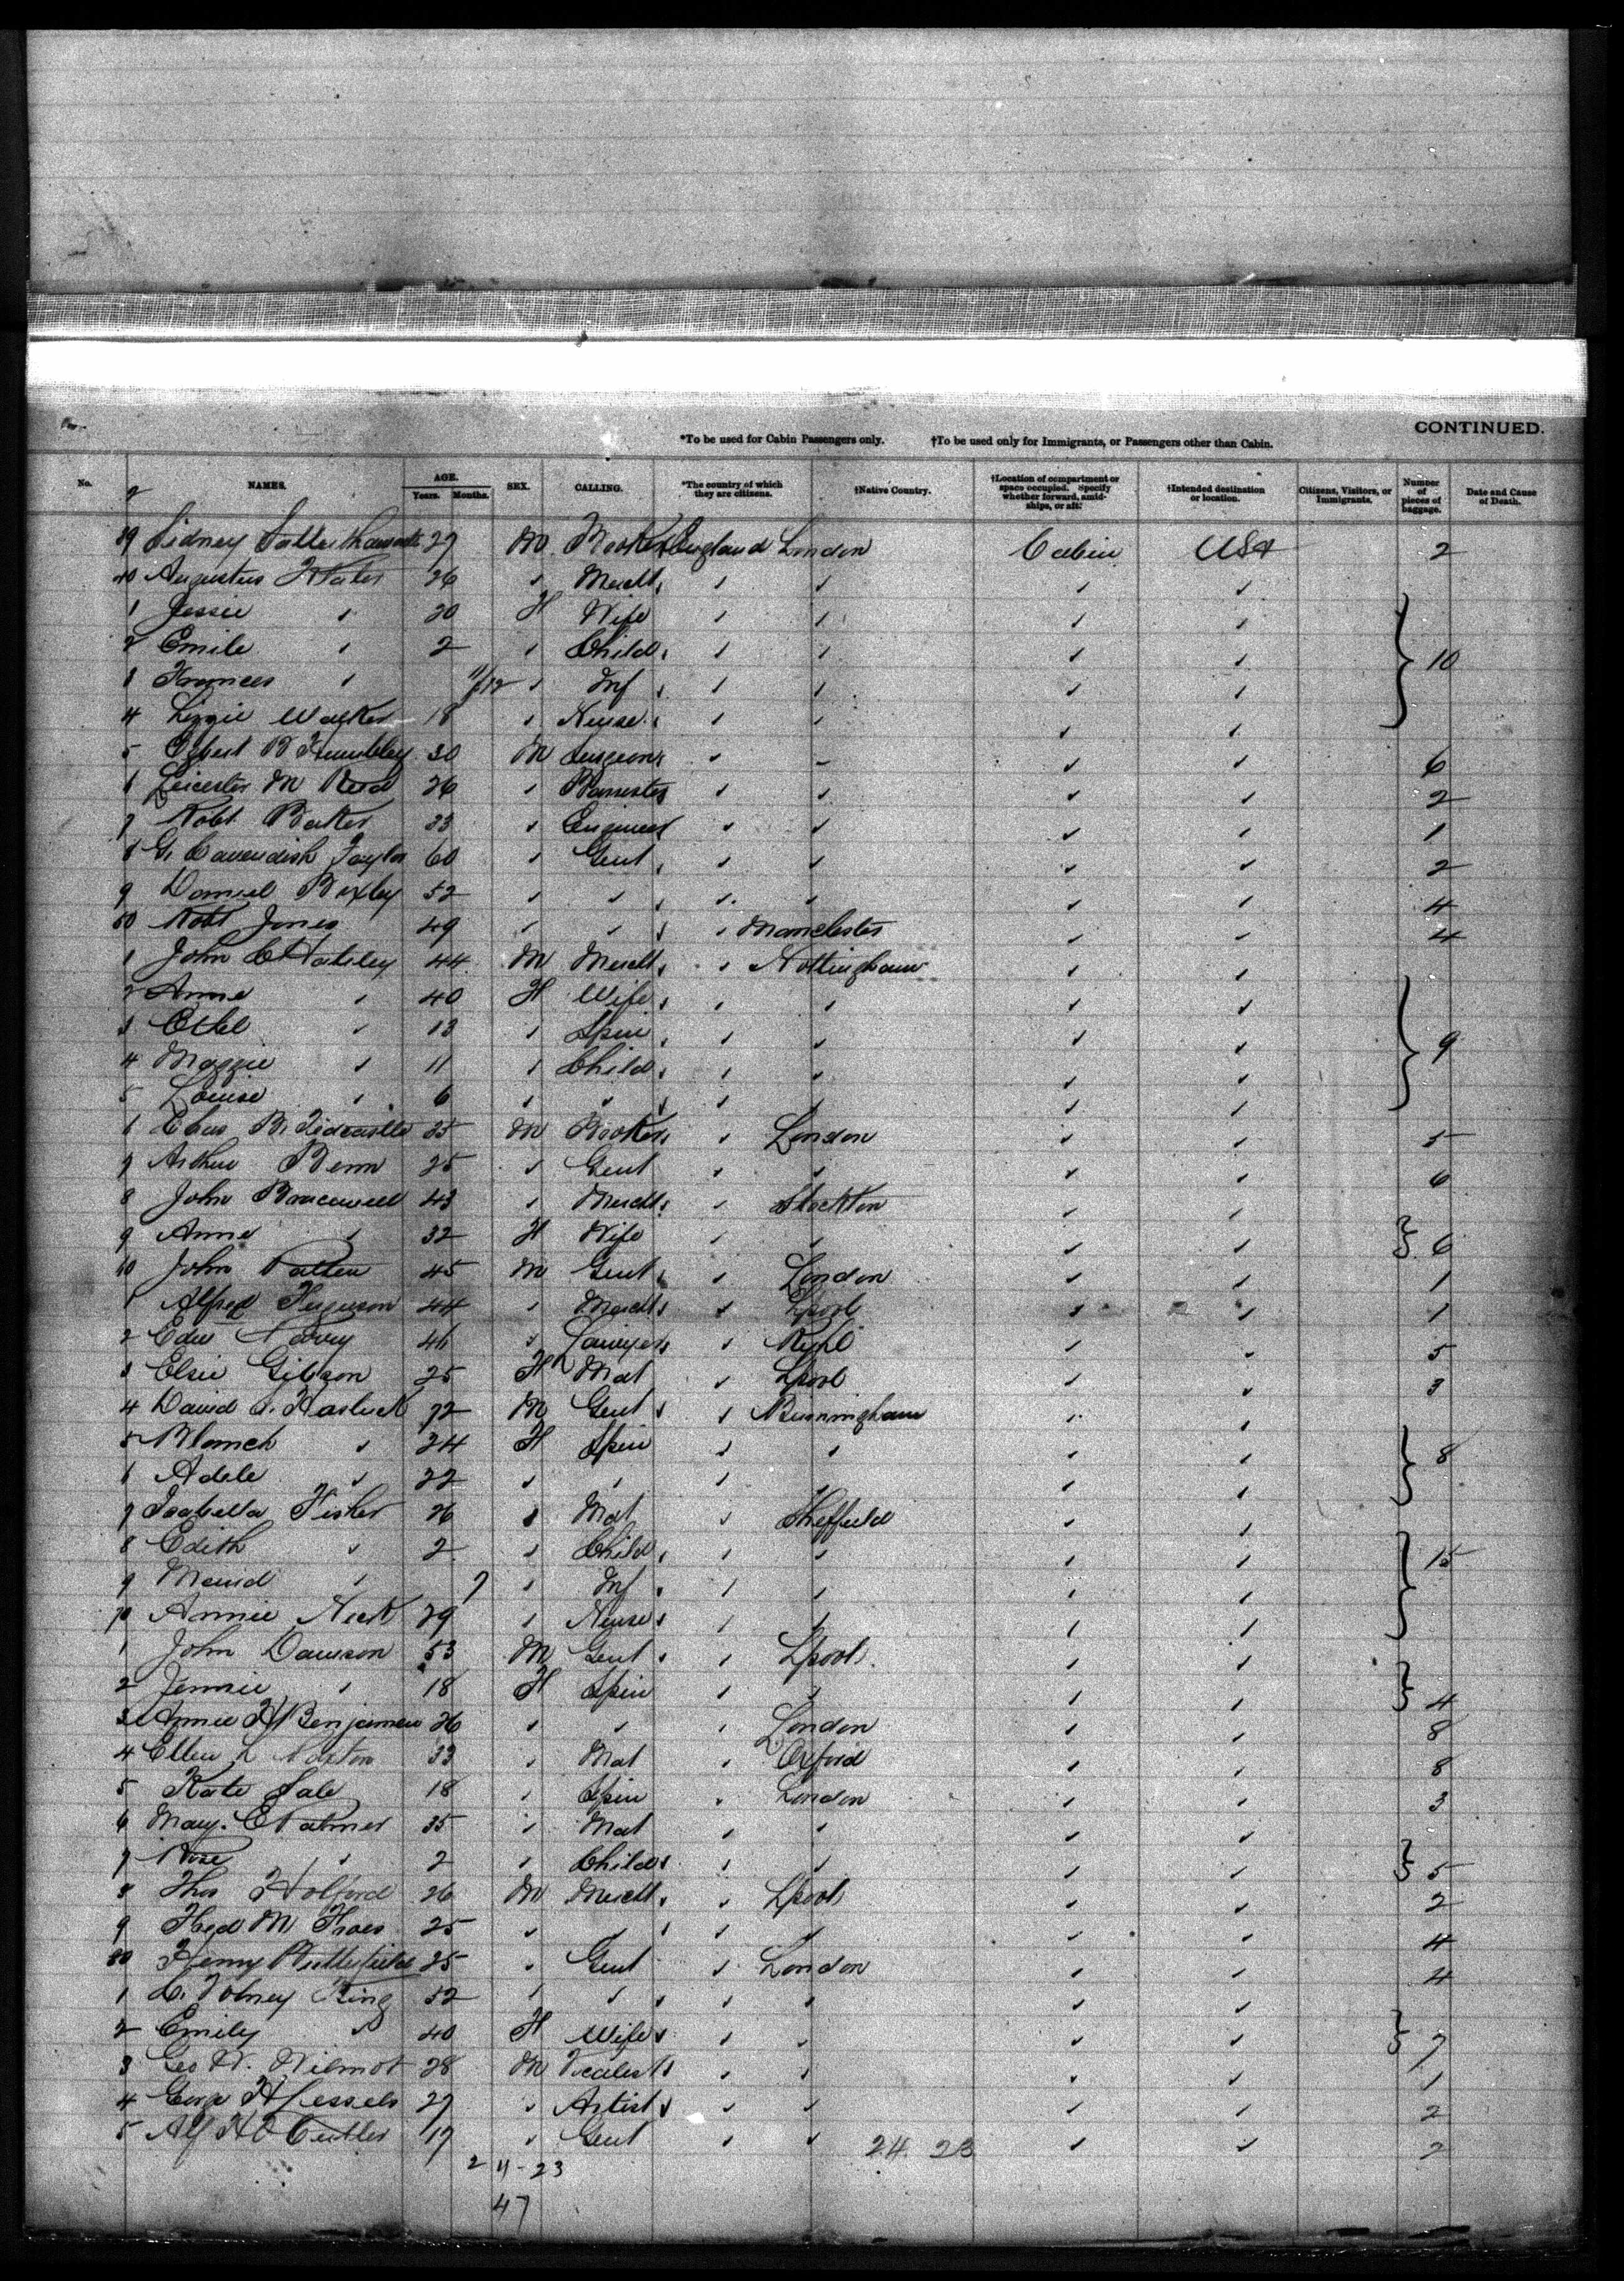 CONTINUED.
*To be used for Cabin Passengers only. †To be used only for Immigrants, or Passengers other than Cabin.
No. NAMES. AGE. Years. Months. SEX. CALLING. *The country of which they are citizens. †Native Country. †Location of compartment or space occupied. Specify whether forward, amidships, or aft. †Intended destination or location. Citizens, Visitors, or Immigrants. Number of pieces of baggage. Date and Cause of Death.
39 Sidney 27 M England London Cabin USA 2
40 Augustus 26 " Mercht " " " "
1 Jessie " 20 F Wife " " " "
2 Emile " 2 " Child " " " " 10
3 Frances " 11/12 " Inf " " " "
4 Lizzie Walker 18 " Nurse " " " "
5 30 M Surgeon " " " " 6
6 Leicester M Reid 26 " Barrister " " " " 2
7 Robt Baker 33 " Engineer " " " " 1
8 G. Cavendish Taylor 60 " Gent " " " " 2
9 Daniel Boxley 52 " " " " " " 4
50 Robt Jones 49 " " " Manchester " " 4
1 John C Hateley 44 M Mercht " Nottingham " "
2 Anne " 40 F Wife " " " "
3 Ethel " 13 " Spin " " " " 9
4 Maggie " 11 " Child " " " "
5 Louise " 6 " " " " " "
6 Chas B. Tidcastle 35 M " London " " 5
7 Arthur Benn 25 " Gent " " " " 6
8 John Bracewell 43 " Mercht " Stockton " "
9 Anne " 32 F Wife " " " " 6
60 John Patten 45 M Gent " London " " 1
1 Alfred Ferguson 44 " Mercht " Lpool " " 1
2 Edw 46 " Lawyer " Rhyl " " 5
3 Elsie Gibson 25 F Mat " Lpool " " 3
4 David S. Hasluck 72 M Gent " Birmingham " "
5 Blanch " 24 F Spin " " " " 8
6 Adele " 22 " " " " "
7 Isabella Fisher 26 " Mat " Sheffield " "
8 Edith " 2 " Child " " " " 15
9 Maud " 7 " Inf " " " "
70 Annie 29 " Nurse " " " "
1 John Dawson 53 M Gent " Lpool " "
2 Jennie " 18 F Spin " " " " 4
3 Annie H Benjamin 26 " " " London " " 8
4 Ellen L 33 " Mat " Oxford " " 8
5 Kate Sale 18 " Spin " London " " 3
6 Mary E Palmer 35 " Mat " " " "
7 Rose " 2 " Child " " " " 5
8 Thos Holford 26 M Mercht " Lpool " " 2
9 Fred M 25 " " " " " " 4
80 Henry 25 " Gent " London " " 4
1 C. Volney King 52 " " " " " "
2 Emily " 40 F Wife " " " " 7
3 Geo W. Wilmot 28 M Vocalist " " " " 1
4 27 " Artist " " " " 2
5 Alf H O Cutler 17 " Gent " " " " 2
24 23
2 4-23
47